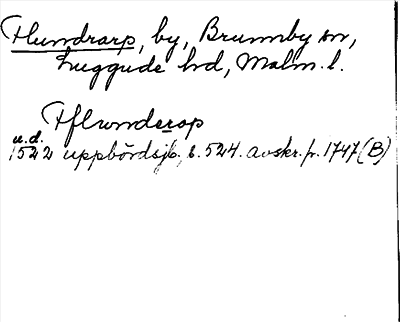 Flundrarp, by, Brunnby sn,
Luggude hd, Malm. l.
Pflunderop
u.d.
1522 uppbördsjb. s. 524. avskr. fr. 1747 (B)